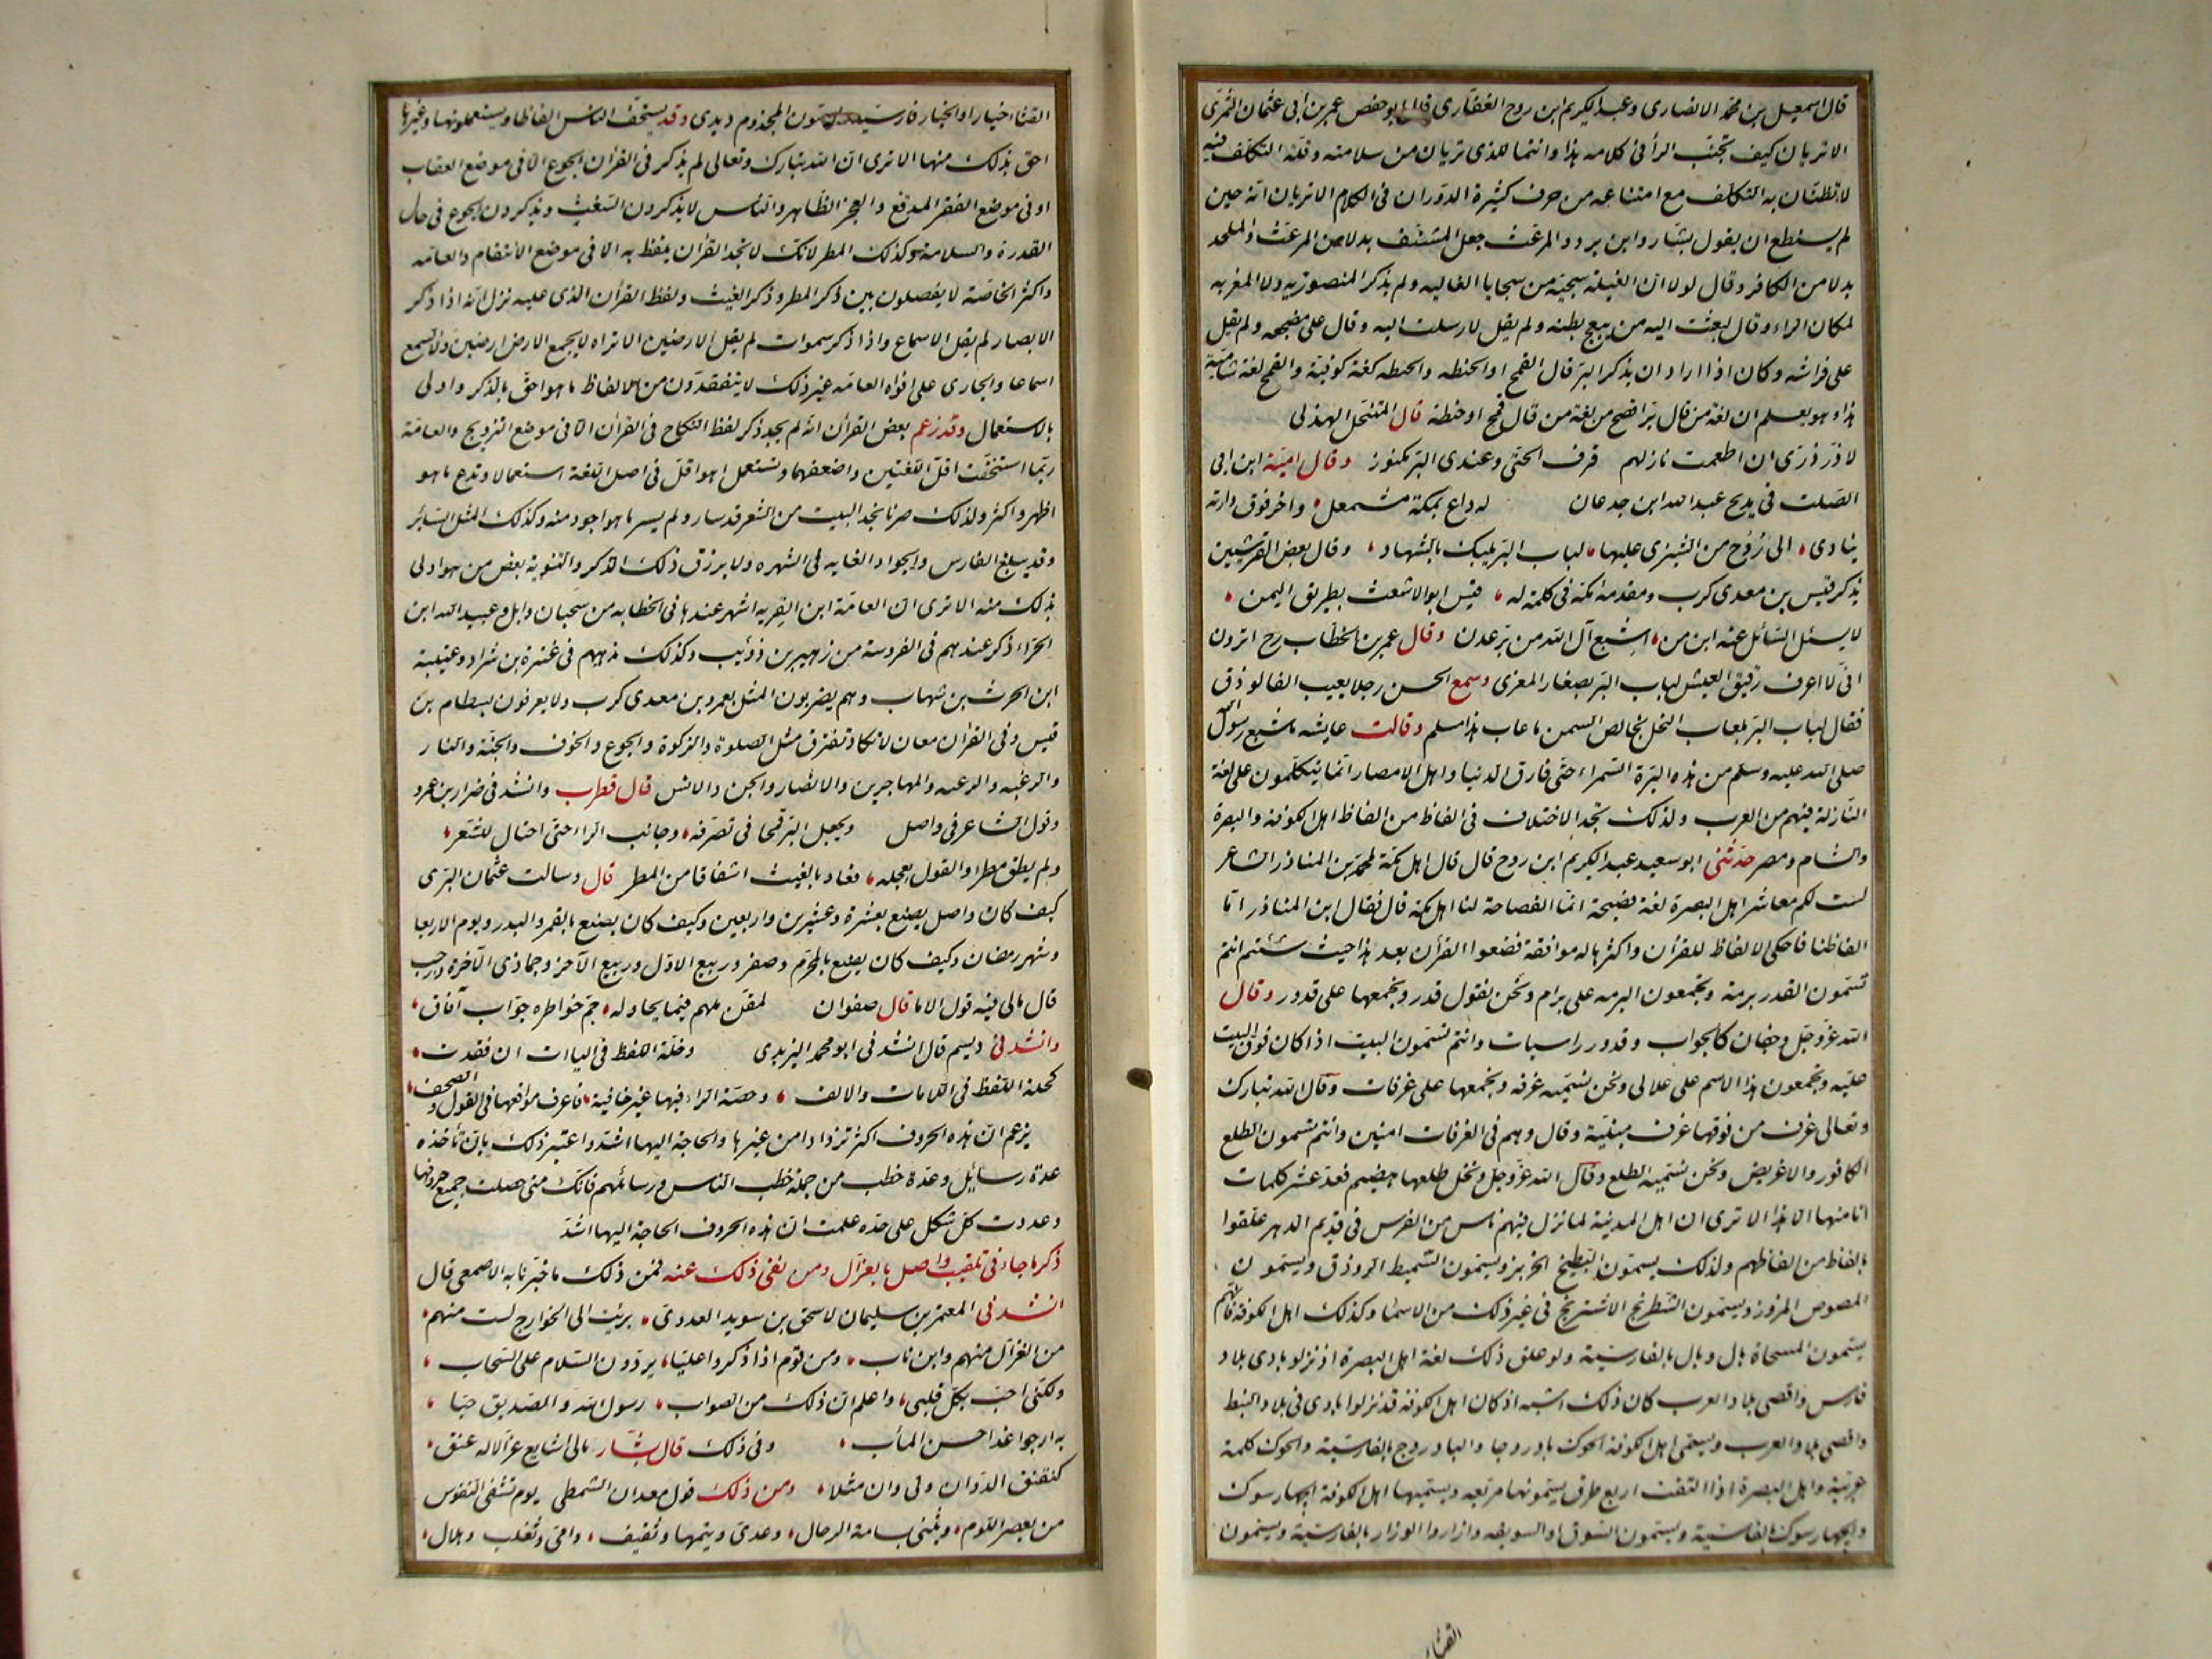 قال اسمعيل بن محمد الانصارى وعبد الكريم ابن روح الغفارى قالا ابو حفص عمر بن أبى عثمان الشمرى
الا تريان كيف تجنب الرأ فى كلامه هذا وانتما للذى تريان من سلامته وقلة التكلف فيه
لا تظنان به التكلف مع امتناعه من حرف كثيرة الدوران فى الكلام الا تريان انه حين
لم يستطع ان يقول بشار وابن برد والمرعث جعل المشنف بدلا من المرعث والملحد
بدلا من الكافر وقال لولا ان الغيلة سجية من سجايا الغاليه ولم يذكر المنصوريه ولا المغيريه
لمكان الراء وقال لبعثت اليه من يبعج بطنه ولم يقل لارسلت اليه وقال على مضجعه ولم يقل
على فراشه وكان اذا اراد ان يذكر البر قال القمح او الحنطه والحنطه لغة كوفية والقمح لغة شامية
هذا وهو يعلم ان لغة من قال بر افصح من لغة من قال قمح او حنطة قال المتنخل الهذلى
لا در درى ان اطعمت نازلهم قرف الحتى وعندى البر مكنوز وقال امية ابن ابى
الصلت فى مديح عبد الله ابن جدعان له داع بمكة مشمعل واخر فوق دارته
ينادى الى رُدُح من الشيزى عليها لباب البر يلبك بالشهاد وقال بعض القرشيين
يذكر قيس بن معدى كرب ومقدمه مكة فى كلمة له قيس ابو الاشعث بطريق اليمن
لا يسئل السائل عنه ابن من اشبع آل الله من بر عدن وقال عمر بن الخطاب رح اترون
انى لا اعرف رقيق العيش لباب البر بصغار المعزى وسمع الحسن رجلا يعيب الفالوذق
فقال لباب البر بلعاب النحل بخالص السمن ما عاب هذا مسلم وقالت عايشه ما شبع رسول الله
صلى الله عليه وسلم من هذه البرة السمراء حتى فارق الدنيا واهل الامصار انما يتكلمون على لغة
النازلة فيهم من العرب ولذلك تجد الاختلاف فى الفاظ من الفاظ اهل الكوفة والبصرة
والشام ومصر حدثنى ابو سعيد عبد الكريم ابن روح قال قال اهل مكة لمحمد بن المناذر الشاعر
لست لكم معاشر اهل البصرة لغة فصيحة انما الفصاحة لنا اهل مكة قال فقال ابن المناذر اما
الفاظنا فاحكى الالفاظ للقرأن واكثرها له موافقة فضعوا القرأن بعد هذا حيث شئتم انتم
تسمون القدر برمة وتجمعون البرمه على برام ونحن نقول قدر ونجمعها على قدور وقال
الله عز وجل وجفان كالجواب وقدور راسيات وانتم تسمون البيت اذا كان فوق البيت
عليه وتجمعون هذا الاسم على علالى ونحن نسميه غرفه ونجمعها على غرفات وقال الله تبارك
وتعالى غرف من فوقها غرف مبنية وقال وهم فى الغرفات امنين وانتم تسمون الطلع
الكافور والاغريض ونحن نسميه الطلع وقال الله عز وجل ونخل طلعها هضيم فعد عشر كلمات
انا منها الا هذا الا ترى ان اهل المدينة لما نزل فيهم ناس من الفرس فى قديم الدهر علقوا
بالفاظ من الفاظهم ولذلك يسمون البطيخ الخربز ويسمون السميط الروذق ويسمون
المصوص المزوز ويسمون الشطرنج الاشترنج فى غير ذلك من الاسما وكذلك اهل الكوفة فانهم
يسمون المسحاة بال وبال بالفارسية ولو علق ذلك لغة اهل البصرة اذ نزلوا بادى بلاد
فارس واقصى بلاد العرب كان ذلك اشبه اذ كان اهل الكوفة قد نزلوا بادى فى بلاد النبط
واقصى بلاد العرب ويسمى اهل الكوفة الحوك باذروجا والباذروج بالفارسية والحوك كلمة
عربية واهل البصرة اذا التقت اربع طرق يسمونها مربعه ويسميها اهل الكوفة الجهارسوك
والجهارسوك بالفارسية ويسمون السوق او السويقه وازاروا الوزار بالفارسية ويسمون
القثاء
القثاء خيار او الخيار فارسيه ويسمون المجذوم ويدى وقد يستخف الناس الفاظا ويستعملونها وغيرها
احق بذلك منها الا ترى ان الله تبارك وتعالى لم يذكر فى القرأن الجوع الا فى موضع العقاب
او فى موضع الفقر المدقع والعجز الظاهر والناس لا يذكرون السغب ويذكرون الجوع فى حال
القدرة والسلامة وكذلك المطر لانك لا تجد القرأن يلفظ به الا فى موضع الانتقام والعامه
واكثر الخاصة لا يفصلون بين ذكر المطر وذكر الغيث ولفظ القرأن الذى عليه نزل انه اذا ذكر
الابصار لم يقل الاسماع واذا ذكر سموات لم يقل الارضين الا تراه لا يجمع الارض ارضين ولا السمع
اسماعا والجارى على افواه العامه غير ذلك لا يتفقدون من الالفاظ ما هو احق بالذكر واولى
بالاستعمال وقد زعم بعض القرأن انه لم يجد ذكر لفظ النكاح فى القرأن الا فى موضع التزويج والعامة
ربما استخفت اقل اللغتين واضعفهما وتستعمل ما هو اقل فى اصل اللغة استعمالا وتدع ما هو
اظهر واكثر ولذلك صرنا نجد البيت من الشعر قد سار ولم يسر ما هو اجود منه وكذلك المثل السائر
وقد يبلغ الفارس والجواد الغايه فى الشهره ولا يرزق ذلك الذكر والتنويه بعض من هو اولى
بذلك منه الا ترى ان العامة ابن القريه اشهر عندها فى الخطابه من سحبان وايل وعبيد الله ابن
الحر اذكر عندهم فى الفروسة من زهير بن ذؤيب وكذلك مذهبهم فى عنترة بن شداد وعتيبة
ابن الحرث بن شهاب وهم يضربون المثل بعمرو بن معدى كرب ولا يعرفون بسطام بن
قيس وفى القرأن معان لا تكاد تفترق مثل الصلوة والزكوة والجوع والخوف والجنة والنار
والرغبه والرهبه والمهاجرين والانصار والجن والانس قال قطرب وانشدنى ضرار بن عمرو
وقول الشاعر فى واصل ويجعل البر قمحا فى تصرفه وجانب الراء حتى احتال للشعر
ولم يطق مطرا والقول يعجله فعاد بالغيث اشفاقا من المطر قال وسالت عثمان البرى
كيف كان واصل يصنع بعشرة وعشرين واربعين وكيف كان يصنع بالقمر والبدر ويوم الاربعا
وشهر رمضان وكيف كان يصنع بالمحرم وصفر وربيع الاول وربيع الآخر وجماذى الآخرة ورجب
قال مالى فيه قول الا ما قال صفوان لمقن ملهم فيما يحاوله جم خواطره جواب آفاق
وانشدنى ديسم قال انشدنى ابو محمد اليزيدى وخلة اللفظ فى الياات ان فقدت
كخلة اللفظ فى اللامات والالف وحصة الراء فيها غير خافية فاعرف مواقعها فى القول والصحف
يزعم ان هذه الحروف اكثر تردادا من غيرها والحاجة اليها اشد واعتبر ذلك بان تأخذه
عدة رسائل وعدة خطب من جملة خطب الناس ورسائلهم فانك متى حصلت جميع حروفها
وعددت كل شكل على حده علمت ان هذه الحروف الحاجة اليها اشد
ذكر ما جاء فى تلقيب واصل بالغزال ومن نفى ذلك عنه فمن ذلك ما خبرنا به الاصمعى قال
انشدنى المعتمر بن سليمان لاسحق بن سويد العدوى برئت الى الخوارج لست منهم
من الغزال منهم وابن ناب ومن قوم اذا ذكروا عليا يردون السلام على السحاب
ولكنى احب بكل قلبى واعلم ان ذلك من الصواب رسول الله والصديق حبا
به ارجوا غدا حسن المأب وفى ذلك قال بشار مالى اشايع غزالا له عنق
كنقنق الدوان ولى وان مثلا ومن ذلك قول معدان الشمطى يوم تشفى النفوس
من يعصر اللوم ويثنى بسامة الرحال وعدى وتيمها وثقيف وامى وثغلب وهلال